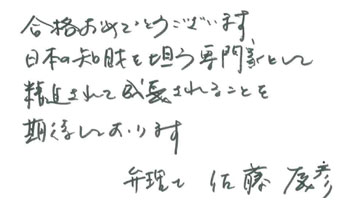 合格おめでとうございます
日本の知財を担う専門家として
精進されて成長されることを
期待しております
弁理士 佐藤辰彦